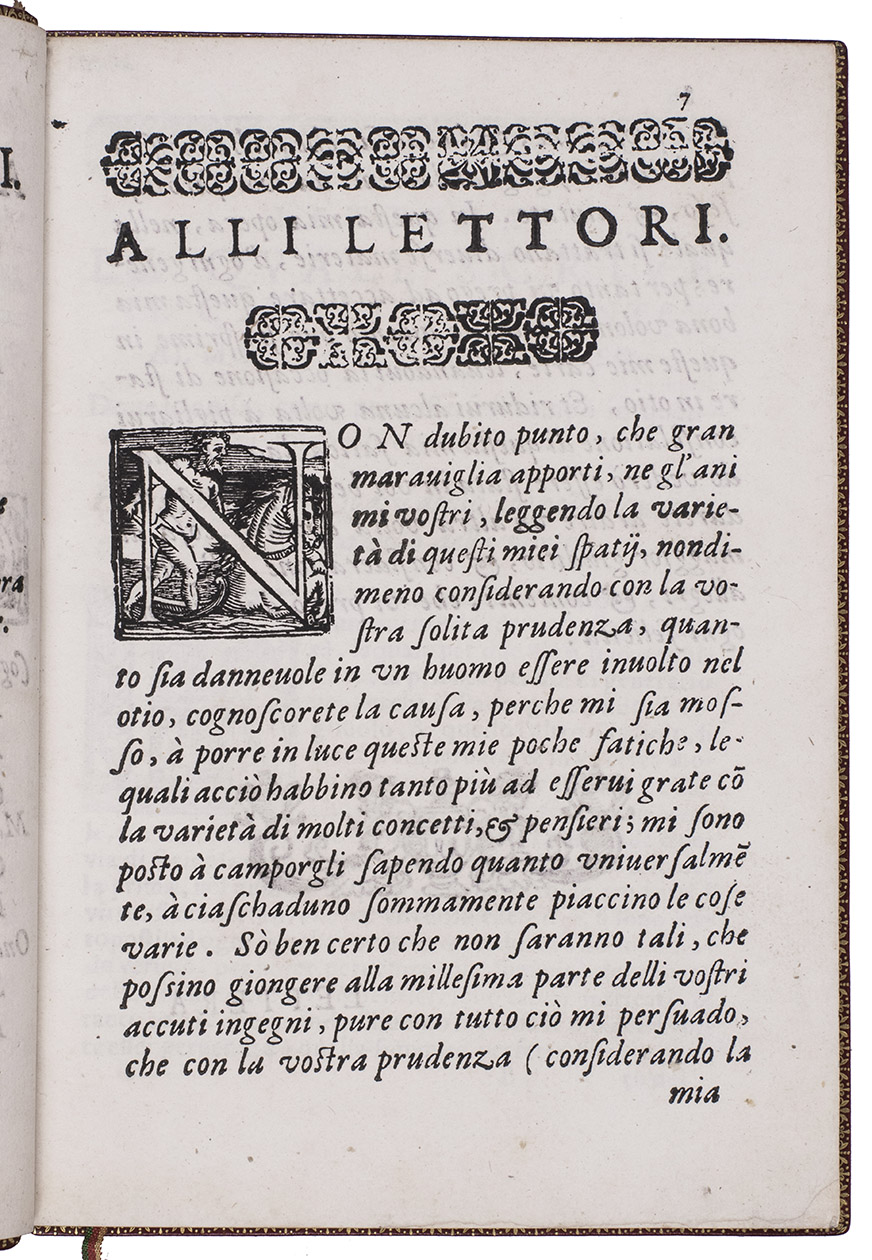 7
ALLI LETTORI.
NON dubito punto, che gran
marauiglia apporti, ne gl'ani
mi voſtri, leggendo la varie-
tà di queſti miei ſpatij, nondi-
meno conſiderando con la vo-
ſtra ſolita prudenza, quan-
to ſia danneuole in vn huomo eſſere inuolto nel
otio, cognoſcorete la cauſa, perche mi ſia moſ-
ſo, à porre in luce queſte mie poche fatiche, le-
quali acciò habbino tanto più ad eſſerui grate cõ
la varietà di molti concetti, & penſieri; mi ſono
poſto à camporgli ſapendo quanto vniuerſalmẽ
te, à ciaſchaduno ſommamente piaccino le coſe
varie. Sò ben certo che non ſaranno tali, che
poſſino giongere alla milleſima parte delli voſtri
accuti ingegni, pure con tutto ciò mi perſuado,
che con la voſtra prudenza (conſiderando la
mia
I.
ra